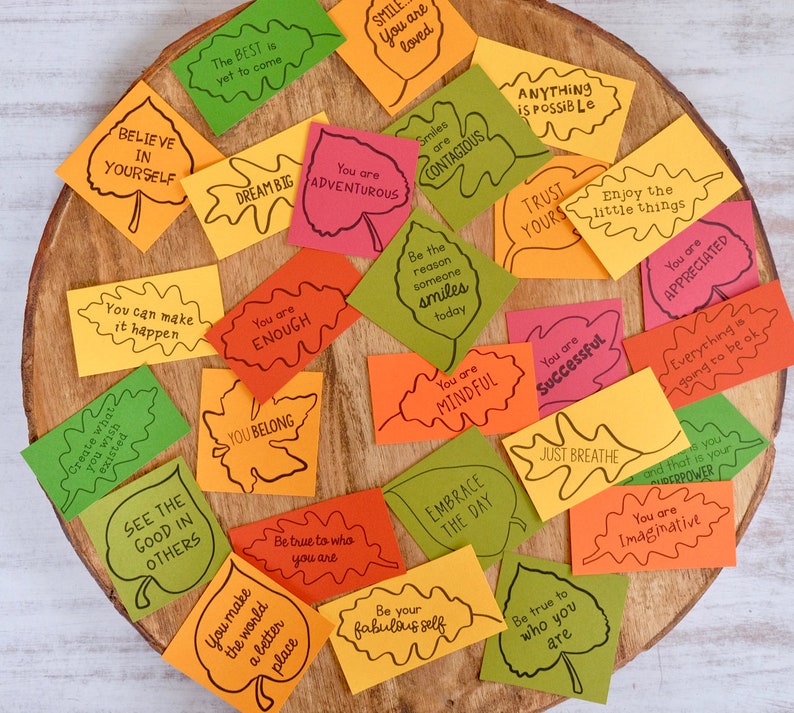 The BEST is
yet to come
SMILE...
You are
loved
ANYTHING
is POSSIBLE
BELIEVE
IN
YOURSELF
DREAM BIG
You are
ADVENTUROUS
Smiles
are
CONTAGIOUS
TRUST
Enjoy the
little things
You are
APPRECIATED
Be the
reason
someone
smiles
today
You can make
it happen
You are
ENOUGH
You are
SUCCESSFUL
Everything is
going to be ok
You are
MINDFUL
Create what
you wish
existed
YOU BELONG
JUST BREATHE
is you
and that is your
SUPERPOWER
SEE THE
GOOD IN
OTHERS
EMBRACE
THE DAY
Be true to who
you are
You are
Imaginative
You make
the world
a better
place
Be your
fabulous self
Be true to
who you
are